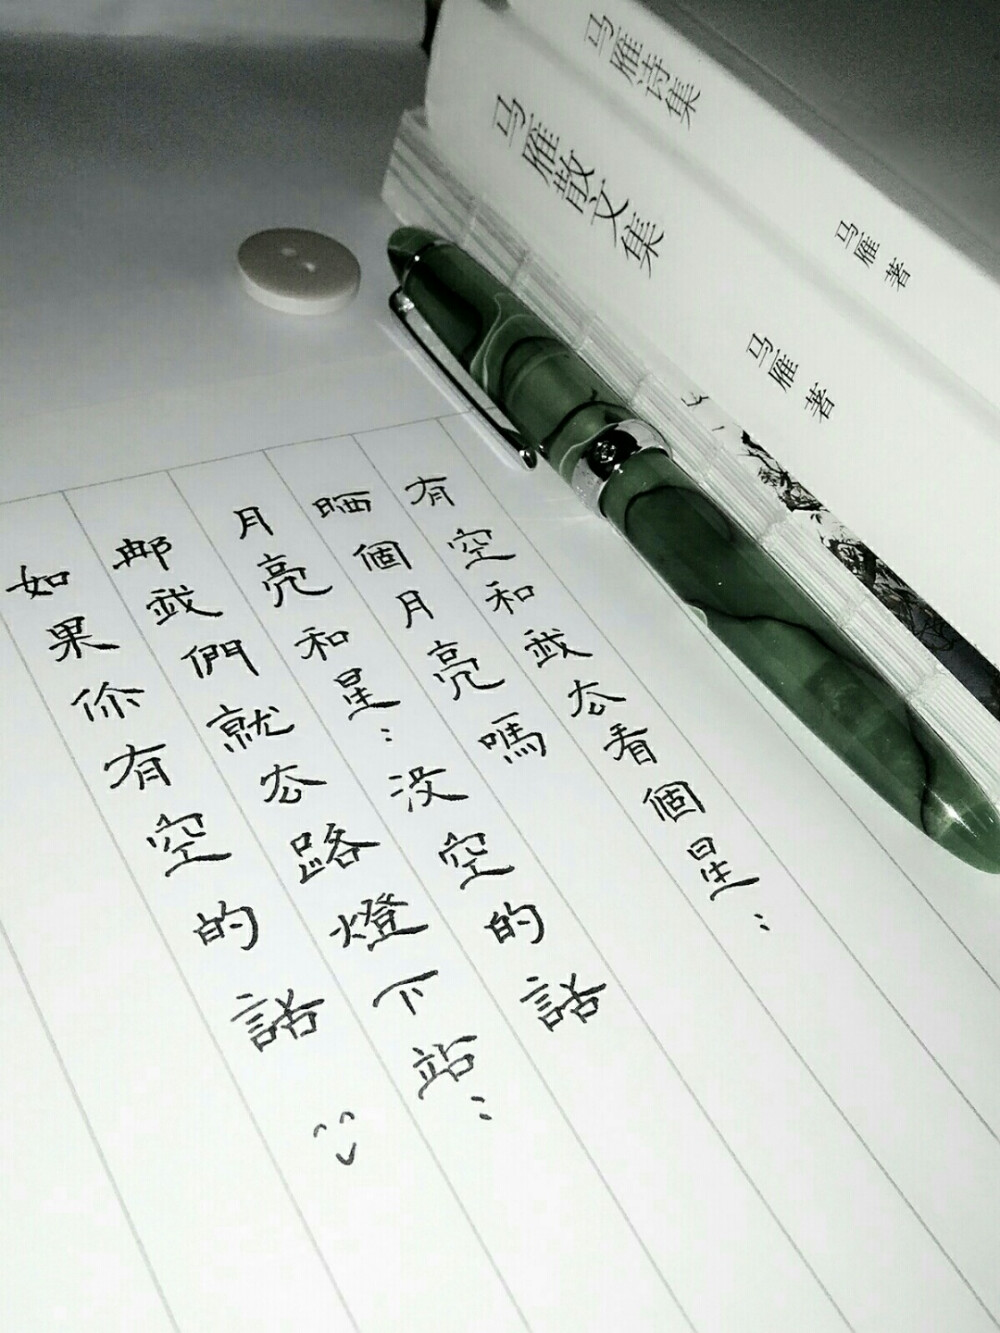 马雁诗集
马雁 著
马雁散文集
马雁 著
有空和我去看個星〻
晒個月亮嗎
月亮和星〻没空的話
那我們就去路燈下站〻
如果你有空的話